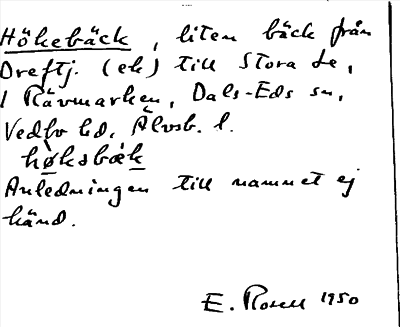 Hökebäck, liten bäck från
Dreftj. (ek) till Stora Le,
i Rävmarken, Dals-Eds sn,
Vedbo hd, Älvsb. l.
hǿksbæk
Anledningen till namnet ej
känd.
E. Rosell 1950